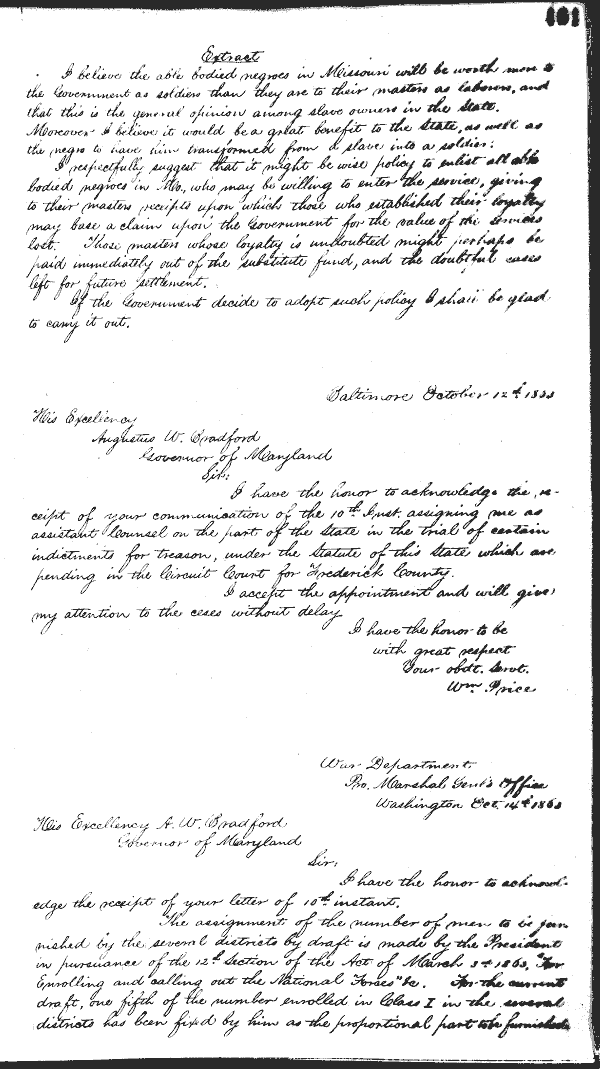 401
Extract
I believe the able bodied negroes in Missouri will be worth more to
the Government as soldiers than they are to their masters as laborers, and
that this is the general opinion among slave owners in the State.
Moreover I believe it would be a great benefit to the State, as well as
the negro to have him transformed from a slave into a soldier.
I respectfully suggest that it might be wise policy to enlist all able
bodied negroes in Mo, who may be willing to enter the service, giving
to their masters receipts upon which those who established their loyalty
may base a claim upon the Government for the value of the services
lost. Those masters whose loyalty is undoubted might perhaps be
paid immediately out of the substitute fund, and the doubtful cases
left for future settlement.
If the Government decide to adopt such policy I shall be glad
to carry it out.
Baltimore October 12th 1863
His Excellency
Augustus W. Bradford
Governor of Maryland
Sir:
I have the honor to acknowledge the re-
ceipt of your communication of the 10th Inst. assigning me as
assistant Counsel on the part of the State in the trial of certain
indictments for treason, under the Statute of this State which are
pending in the Circuit Court for Frederick County.
I accept the appointment and will give
my attention to the ceses without delay
I have the honor to be
with great respect
Your obdt. Servt.
Wm Price
War Department
Pro. Marshal Genl's Office
Washington Oct. 14th 1863
His Excellency A. W. Bradford
Governor of Maryland
Sir:
I have the honor to acknowl-
edge the receipt of your letter of 10th instant.
The assignment of the number of men to be fur
nished by the several districts by draft is made by the President
in pursuance of the 12th Section of the Act of March 3d 1863, "For
Enrolling and calling out the National Forses" &c. For the current
draft, one fifth of the number enrolled in Class I in the several
districts has been fixed by him as the proportional part to be furnished